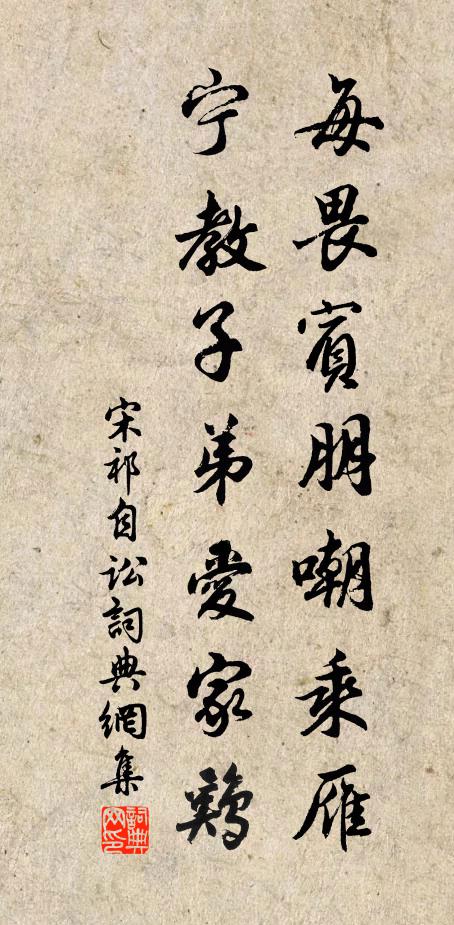 每畏賓朋嘲乘雁
宁教子弟愛家鷄
宋祁自訟詞典網集
詞典网印